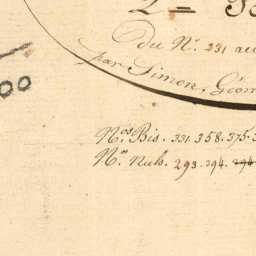 2me
du No. 331 au
par Simon, Géom
00
Nos. Bis. 331. 358. 375.
Nos. Nuls. 293. 294. 294